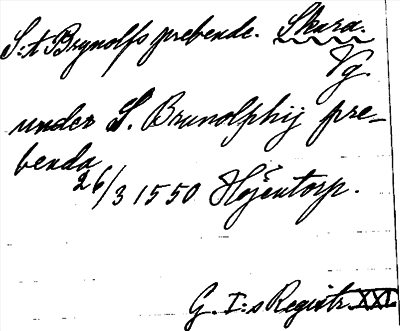 S:t Brynolfs prebende. Skara.
Vg.
under S. Brunolphij pre-
benda
26/3 1550 Höjentorp.
G. I:s Registr. XXI